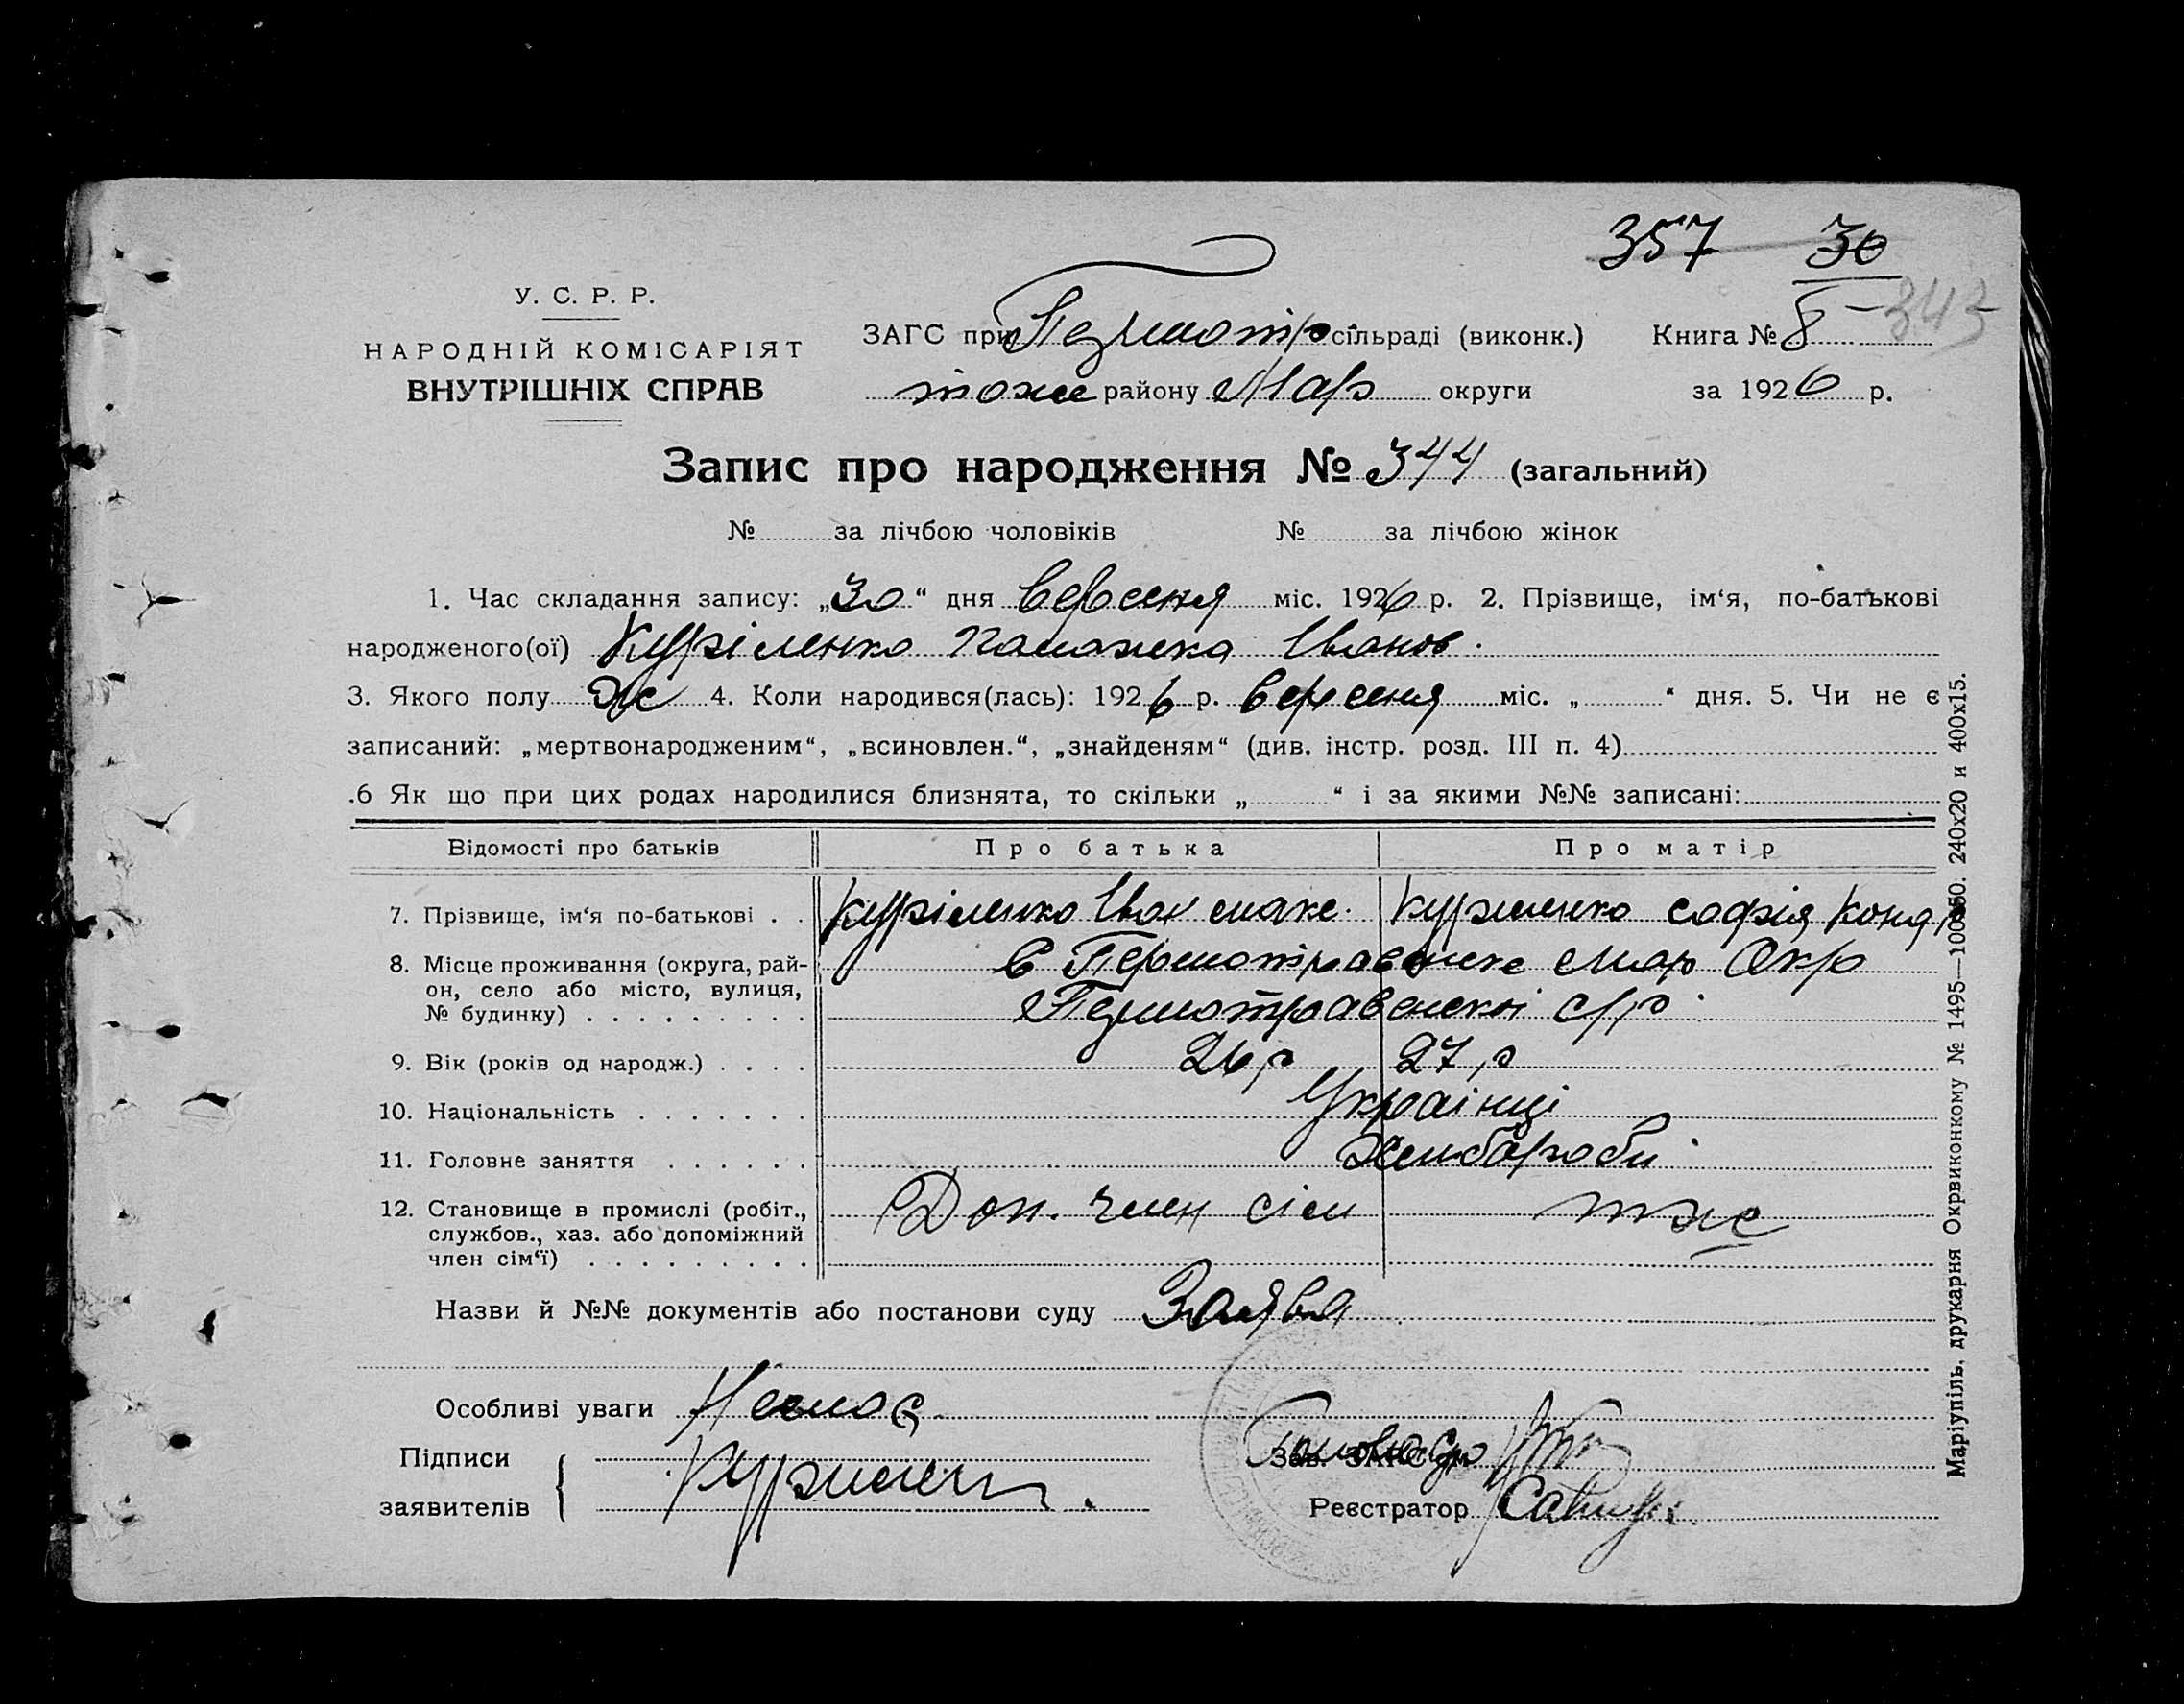 357 30
8 – 343
У. С. Р. Р.
НАРОДНІЙ КОМІСАРІЯТ
ВНУТРІШНІХ СПРАВ
ЗАГС при сільраді (виконк.) Книга №
тоже району Мар округи за 1926 р.
Запис про народження № 344 (загальний)
№ за лічбою чоловіків № за лічбою жінок
1. Час складання запису: „30“ дня вересня міс. 1926 р. 2. Прізвище, ім‘я, по-батькові
народженого(ої) Куріленко Іванов.
3. Якого полу ж 4. Коли народився(лась): 1926 р. вересня міс. „ “ дня. 5. Чи не є
записаний: „мертвонародженим“, „всиновлен.“, „знайденям“ (див. інстр. розд. III п. 4)
.6 Як що при цих родах народилися близнята, то скільки „ “ і за якими №№ записані:
Відомості про батьків Про батька Про матір
7. Прізвище, ім‘я по-батькові . . Куріленко Іван Курленко Софія Конд
8. Місце проживання (округа, рай-
он, село або місто, вулиця,
№ будинку) . . . . . . . . . с/р
9. Вік (років од народж.) . . . . 26 р 27 р
10. Національність . . . . . . . Українці
11. Головне заняття . . . . . . Хлибароби
12. Становище в промислі (робіт., Доп. член сіми тже
службов., хаз. або допоміжний
член сім‘ї) . . . . . . . . .
Назви й №№ документів або постанови суду Заява
Особливі уваги Немає
Підписи
заявителів Реєстратор
Маріупіль, друкарня Окрвиконкому № 1495—10050. 240х20 и 400х15.